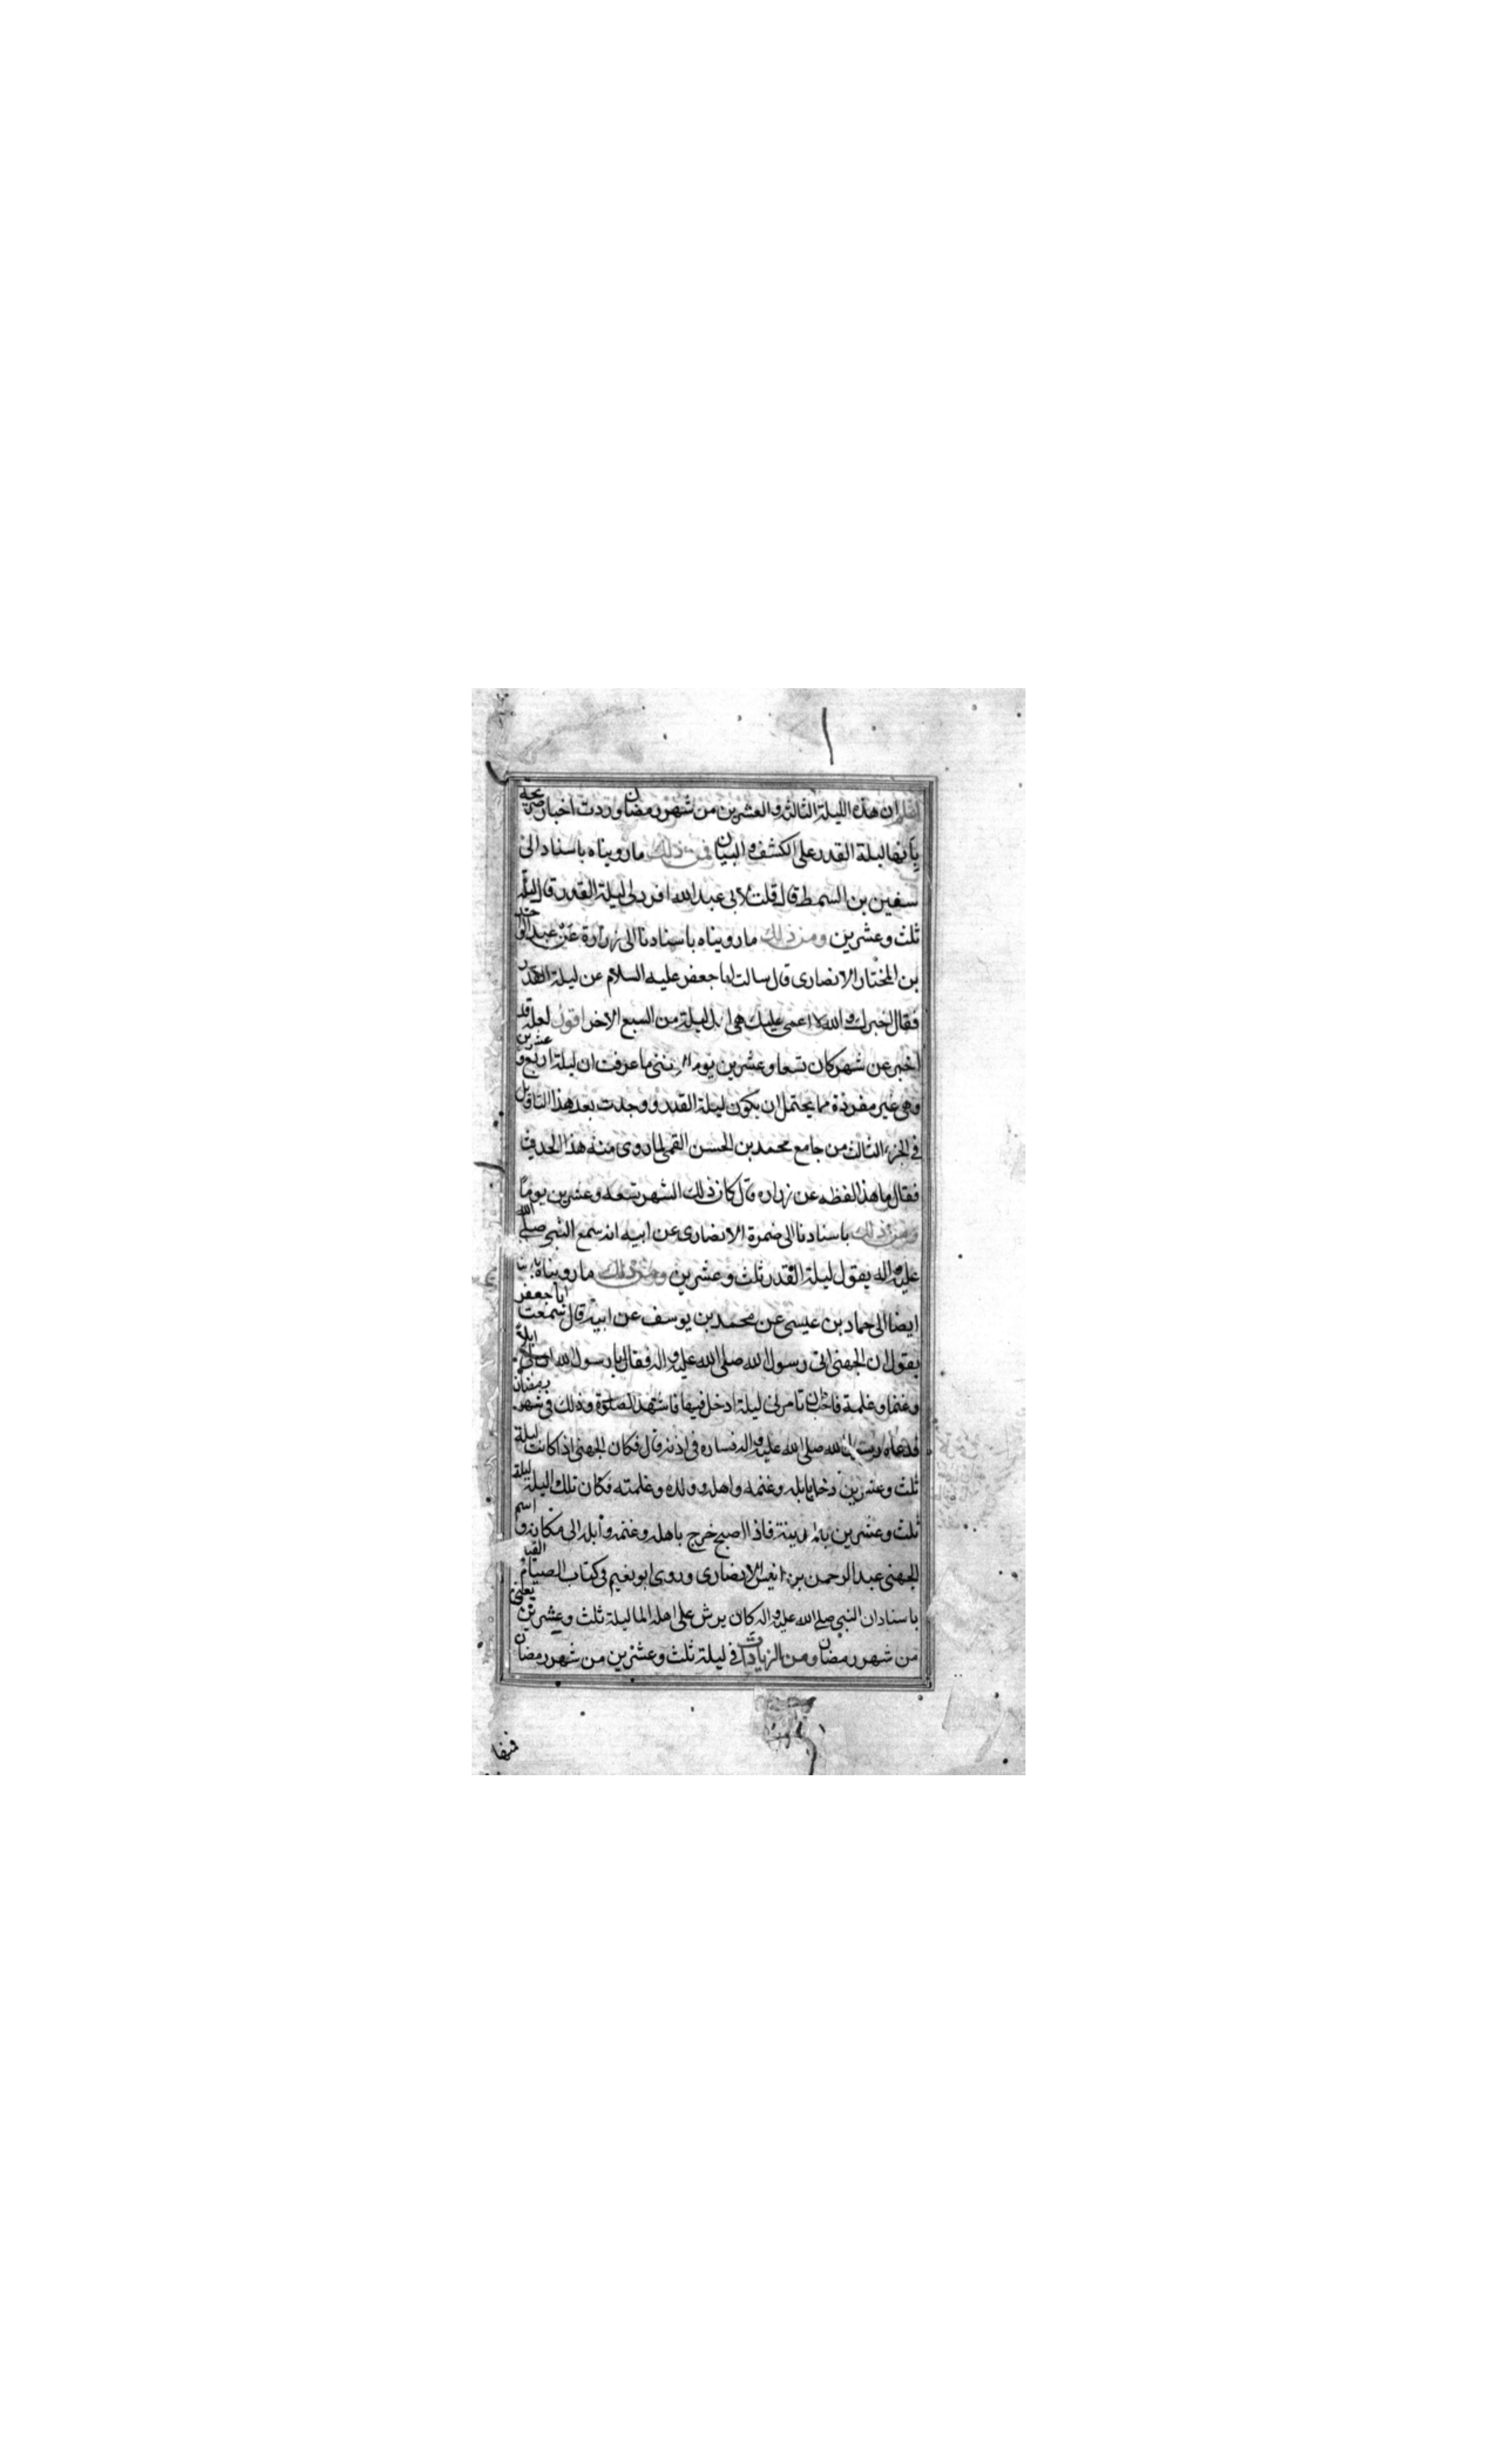 اعلم ان هذه الليلة الثالثة والعشرين من شهر رمضان وردت اخبار صريحة
بانها ليلة القدر على الكشف والبيان فمن ذلك ما رويناه باسناد الى
سفين بن السمط قال قلت لابى عبد الله افرد لى ليلة القدر قال ليلة
ثلث وعشرين ومن ذلك ما رويناه باسنادنا الى زرارة عن عبد الواحد
بن المختار الانصارى قال سالت ابا جعفر عليه السلام عن ليلة القدر
فقال اخبرك والله لا اعمى عليك هى اول ليلة من السبع الاخر اقول لعله قد
اخبر عن شهر كان تسعا وعشرين يوما لاننى ما عرفت ان ليلة اربع وعشرين
وهى غير مفردة مما يحتمل ان يكون ليلة القدر ووجدت بعد هذا التاويل
فى الجزء الثالث من جامع محمد بن الحسن القمى لما روى منه هذا الحديث
فقال ما هذا لفظه عن زراره قال كان ذلك الشهر تسعه وعشرين يوما
ومن ذلك باسنادنا الى ضمرة الانصارى عن ابيه انه سمع النبى صلى الله
عليه واله يقول ليلة القدر ثلث وعشرين ومن ذلك ما رويناه
ايضا الى حماد بن عيسى عن محمد بن يوسف عن ابيه قال سمعت ابا جعفر
يقول ان الجهنى اتى رسول الله صلى الله عليه واله فقال يا رسول الله ان لى ابلا
وغنما وغلمة فاحب ان تامرنى ليلة ادخل فيها فاشهد الصلوة وذلك فى شهر رمضان
فدعاه رسول الله صلى الله عليه واله فساره فى اذنه قال فكان الجهنى اذا كانت ليلة
ثلث وعشرين دخل بابله وغنمه واهله وولده وغلمته فكان تلك الليلة ليلة
ثلث وعشرين بالمدينة فاذا اصبح خرج باهله وغنمه وابله الى مكانه واسم
الجهنى عبد الرحمن بن انيس الانصارى وروى ابو نعيم فى كتاب الصيام والقيام
باسناد ان النبى صلى الله عليه واله كان يرش على اهله الما ليلة ثلث وعشرين يعنى
من شهر رمضان ومن الزيادات فى ليلة ثلث وعشرين من شهر رمضان
فيها